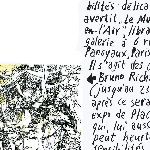 bilités délica
avertit. Le Mu
en-l'Air" libra
galerie à 6 r
Ponsyaux, Paris
Il s'agit des
← Bruno Rich
(jusqu'au 23
après ce sera
expo de Plac
qui, lui auss
peut heurte
sensibilités